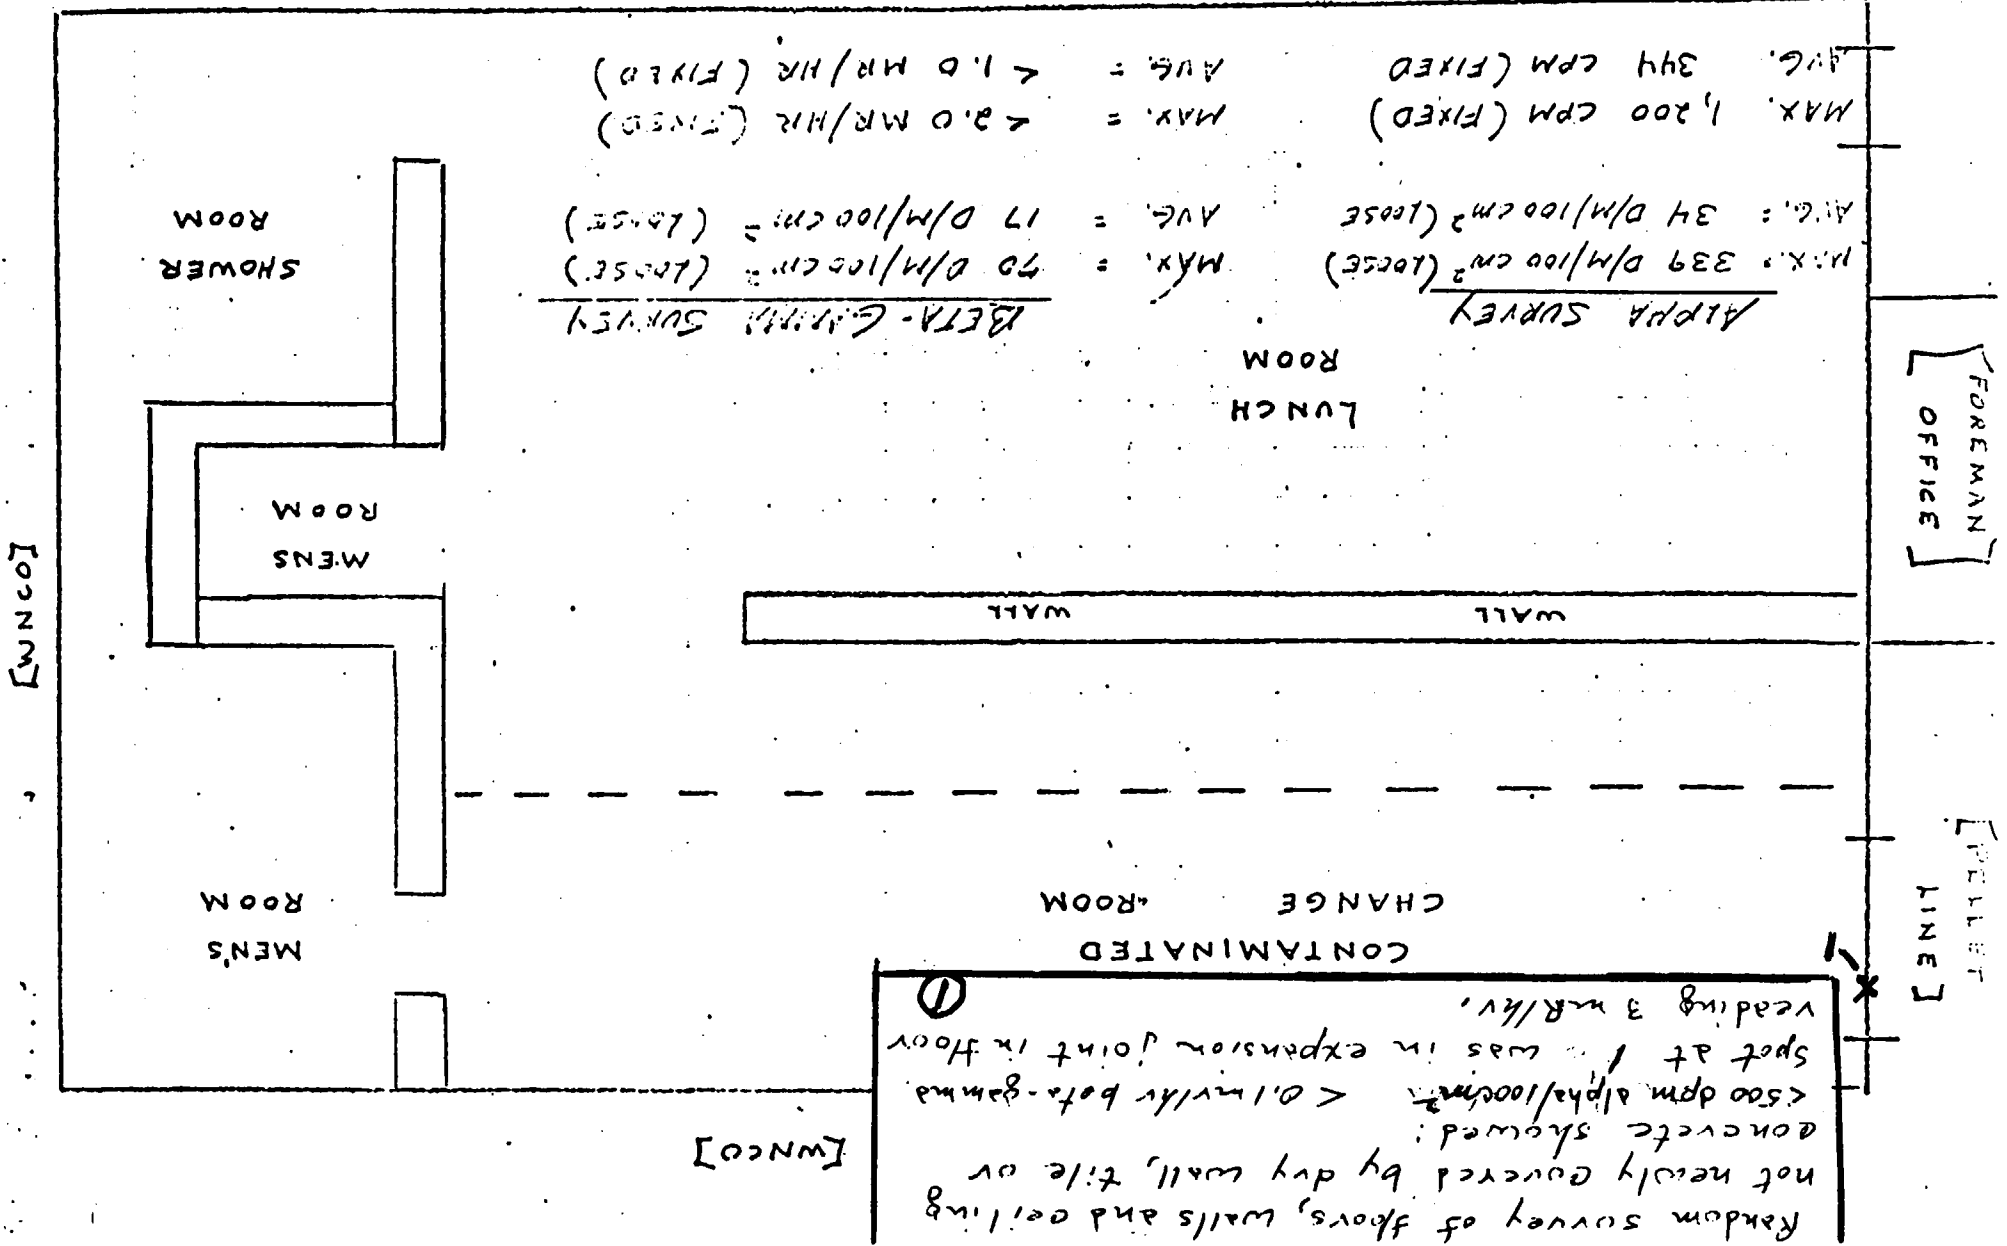 Random survey of floors, walls and ceiling
not newly covered by dry wall, tile or
concrete showed:
<500 dpm alpha/100cm² < 0.1mr/hr beta-gamma.
Spot at 1 was in expansion joint in floor
reading 3 mR/hr.
1
1
[WNCO]
CONTAMINATED
CHANGE ROOM
MEN'S
ROOM
[PELLET
LINE]
WALL WALL
MENS
ROOM
[WNCO]
[FOREMAN
OFFICE]
LUNCH
ROOM
SHOWER
ROOM
ALPHA SURVEY
MAX. 339 D/M/100 cm² (LOOSE)
AVG. = 34 D/M/100 cm² (LOOSE
MAX. 1,200 CPM (FIXED)
AVG. 344 CPM (FIXED
BETA-GAMMA SURVEY
MAX. = 70 D/M/100 cm² (LOOSE)
AVG. = 17 D/M/100 cm² (LOOSE)
MAX. = < 2.0 MR/HR (FIXED)
AVG. = < 1.0 MR/HR (FIXED)